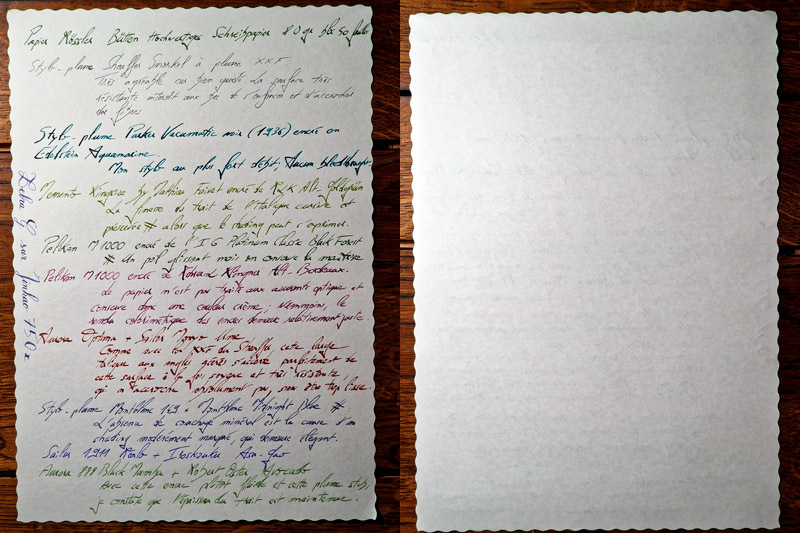 Papier Rössler Bütten Hochwertiges Schreibpapier 80 gr les 50 feuilles
Stylo-plume Sheaffer Snorkel à plume XXF
Très agréable car bien que la surface très
résistante interdit aux bec de s'enfoncer et d'accrocher
des fibres
Stylo-plume Parker Vacumatic noir (1936) encré en
Edelstein Aquamarine.
Mon stylo au plus fort débit, Aucun bleedthrough.
Memento Kingsize by Mathieu Faivet encré de R&K Alt-Goldgrün
La finesse du trait de l'italique cursive est
préservée # alors que le shading peut s'exprimer.
Pelikan M1000 encré de l'IG Platinum Classic Black Forest
# Un poil glissant mais on conserve la maîtrise
Pelikan M1000 encré de Rohrer & Klingner Alt-Bordeaux.
Ce papier n'est pas traité aux azurants optique et
conserve donc une couleur crème ; néanmoins, le
rendu colorimétrique des encres demeure relativement juste.
Aurora Optima + Sailor
Comme avec la XXF du Sheaffer, cette large
italique aux angles s'avère parfaitement de
cette surface à la fois soyeuse et très résistante
qui n'accroche absolument pas, sans être trop lisse.
Stylo-plume Montblanc 149 + Montblanc Midnight Blue #
L'absence de couchage minéral est la cause d'un
shading modérément marqué, qui demeure élégant.
Sailor 1911 Realo + Iroshizuku Asa-gao
Aurora 888 Black Mamba + Robert Oster Avocado
Avec cette encre plutôt fluide et cette plume stub,
je constate que l'épaisseur du trait est maintenue.
Zebra G sur Jinhao 750 :